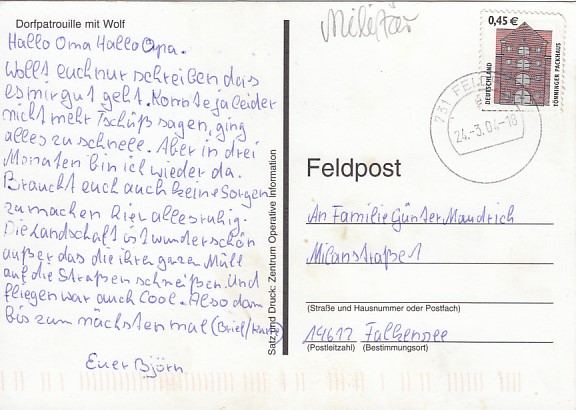 Dorfpatrouille mit Wolf
Hallo Oma Hallo Opa.
wollt euch nur schreiben das
es mir gut geht. Konnte ja leider
nicht mehr Tschüß sagen, ging
alles zu schnelle. Aber in drei
Monaten bin ich wieder da.
Braucht euch auch keine Sorgen
zu machen hier alles ruhig.
Die Landschaft ist wunderschön
außer das die ihren ganzen Müll
auf die Straßen schmeißen. Und
fliegen war auch Cool. Also dann
bis zum nächsten mal (Brief/Karte)
Euer Björn
Satz und Druck: Zentrum Operative Information
Militär
0,45 €
DEUTSCHLAND
TÖNNINGER PACKHAUS
731 FELDPOST
24.-3.04-18
Feldpost
An Familie Günter Mandrich
Milanstraße 1
(Straße und Hausnummer oder Postfach)
14612 Falkensee
(Postleitzahl) (Bestimmungsort)